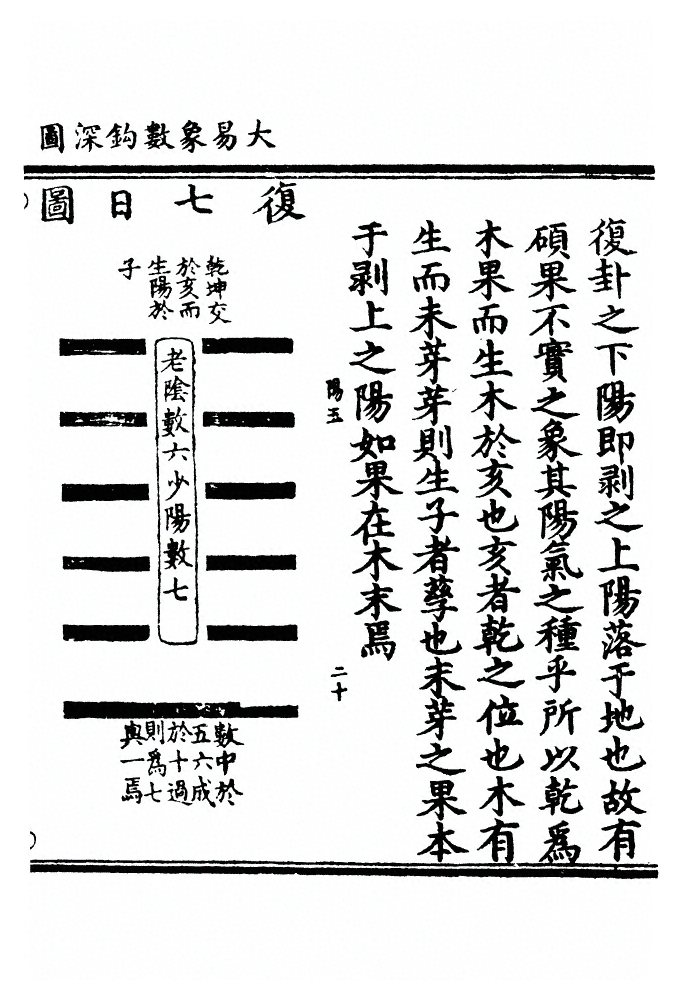 大易象數鈎深圖
復卦之下陽即剥之上陽落于地也故有
碩果不實之象其陽氣之種乎所以乾爲
木果而生木於亥也亥者乾之位也木有
生而未芽芽則生子者孳也未芽之果本
于剥上之陽如果在木末焉
陽五
二十
復七日圖
乾坤交
於亥而
生陽於
子
老陰數六少陽數七
數中於
五六成
於十過
則爲七
與一焉